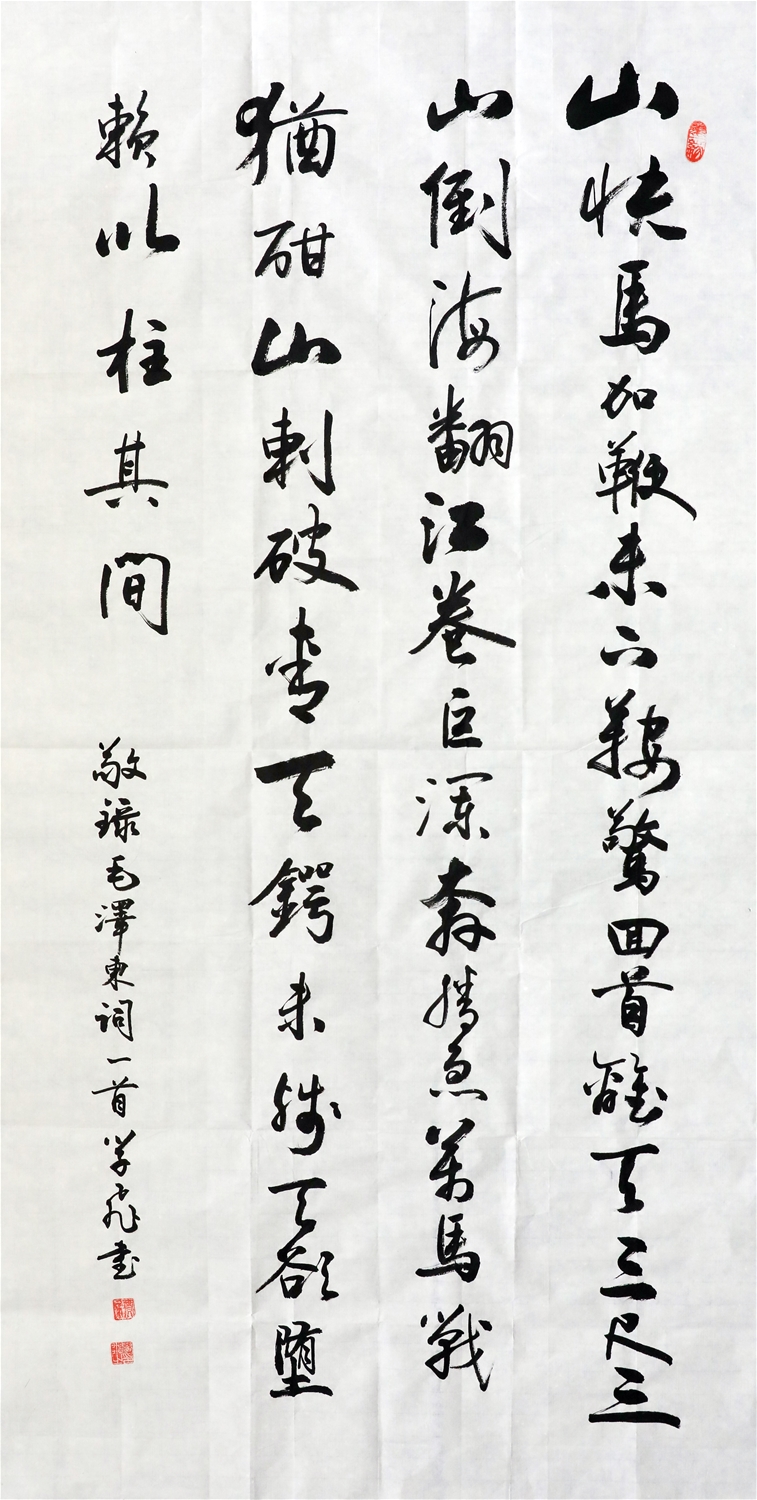 山快馬加鞭未下鞍驚回首離天三尺三
山倒海翻江卷巨瀾奔騰急萬馬戰
猶酣山刺破青天鍔未殘天欲墮
賴以柱其間
敬錄毛澤東詞一首學飛書